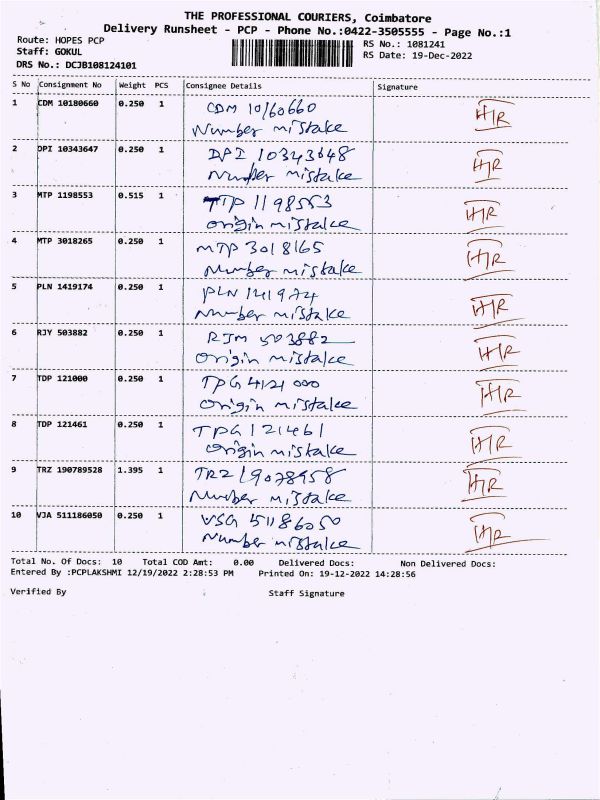 THE PROFESSIONAL COURIERS, Coimbatore
Delivery Runsheet - PCP - Phone No.:0422-3505555 - Page No.:1
Route: HOPES PCP
RS No.: 1081241
Staff: GOKUL
RS Date: 19-Dec-2022
DRS No.: DCJB108124101
S No Consignment No Weight PCS Consignee Details Signature
1 CDM 10180660 0.250 1 CDM 10160660
Number mistake
HR
2 DPI 10343647 0.250 1 DPI 10343648
Number mistake
HR
3 MTP 1198553 0.515 1 TTP 1198553
origin mistake
HR
4 MTP 3018265 0.250 1 MTP 3018165
Number mistake
HR
5 PLN 1419174 0.250 1 PLN 141974
Number mistake
HR
6 RJY 503882 0.250 1 RJM 503882
Origin mistake
HR
7 TDP 121000 0.250 1 TPG 4121000
Origin mistake
HR
8 TDP 121461 0.250 1 TPG 121461
Origin mistake
HR
9 TRZ 190789528 1.395 1 TRZ 19078958
Number mistake
HR
10 VJA 511186050 0.250 1 VSG 51186050
Number mistake
HR
Total No. Of Docs: 10 Total COD Amt: 0.00 Delivered Docs: Non Delivered Docs:
Entered By :PCPLAKSHMI 12/19/2022 2:28:53 PM Printed On: 19-12-2022 14:28:56
Verified By Staff Signature